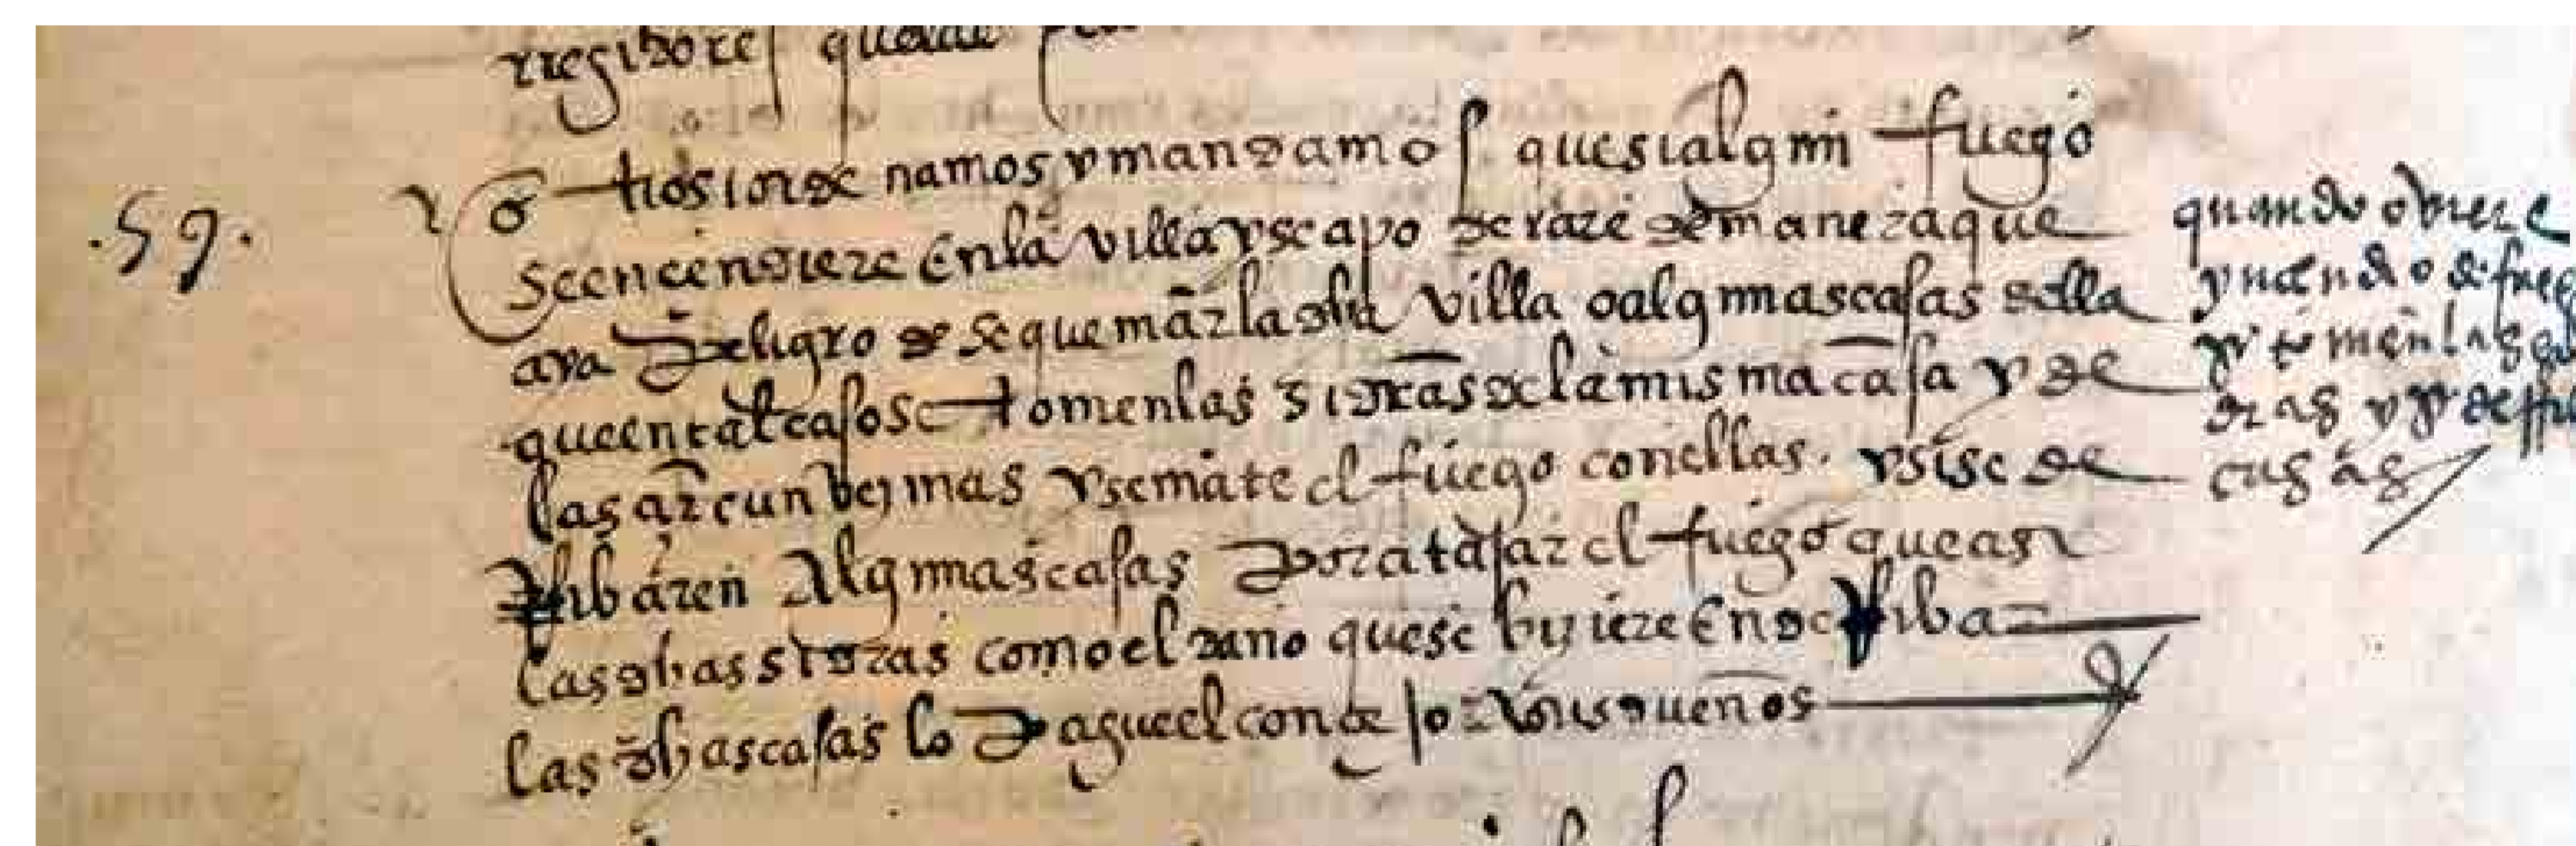 rregidores
.59.
otrosi ordenamos y mandamos que si algun fuego
se encendiere en la villa y se apoderare de manera que
aya peligro de se quemar la dha villa o algunas casas della
que en tal caso se tomen las sidras de la misma casa y de
las çircunbezinas y se mate el fuego con ellas. y si se de
rribaren algunas casas por atajar el fuego que asi
las dhas sidras como el daño que se hiziere en derribar
las dhas casas lo pague el conçejo a sus dueños
quando obiere
yncendio de fueg
se tomen las
dras y se
casas